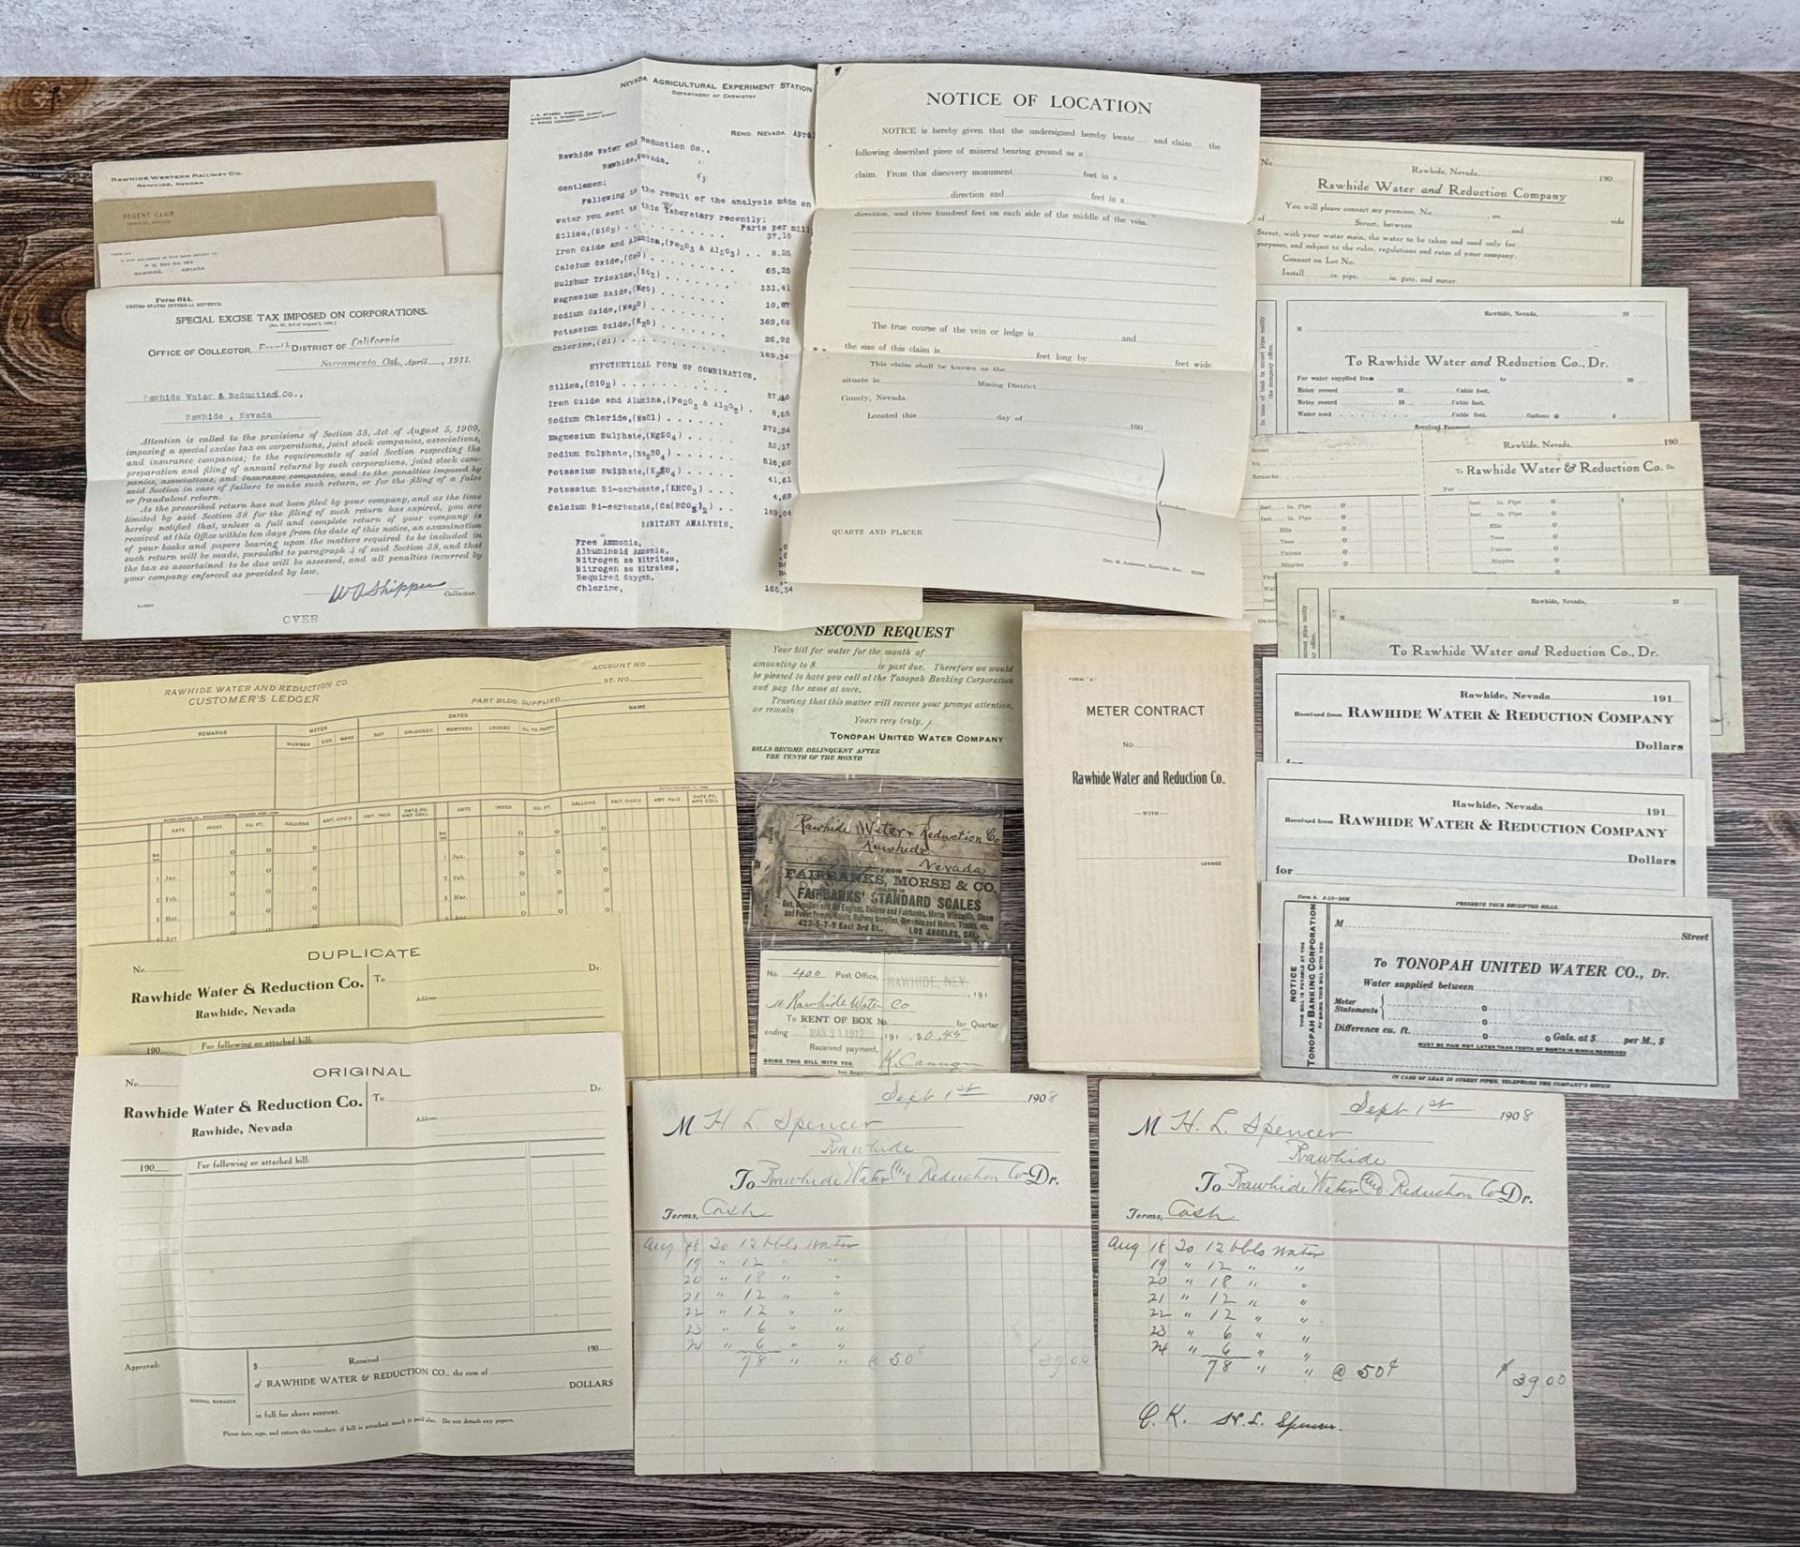 RAWHIDE WESTERN RAILWAY CO.
RAWHIDE, NEVADA
REGENT CLUB
P. O. BOX NO. 184
RAWHIDE, NEVADA
Form 644.
UNITED STATES INTERNAL REVENUE.
SPECIAL EXCISE TAX IMPOSED ON CORPORATIONS.
OFFICE OF COLLECTOR, Fourth DISTRICT OF California
Sacramento Cal, April , 1911.
Rawhide Water & Reduction Co.,
Rawhide , Nevada
Attention is called to the provisions of Section 38, Act of August 5, 1909,
imposing a special excise tax on corporations, joint stock companies, associations,
and insurance companies; to the requirements of said Section respecting the
preparation and filing of annual returns by such corporations, joint stock com-
panies, associations, and insurance companies, and to the penalties imposed by
said Section in case of failure to make such return, or for the filing of a false
or fraudulent return.
As the prescribed return has not been filed by your company, and as the time
limited by said Section 38 for the filing of such return has expired, you are
hereby notified that, unless a full and complete return of your company is
received at this Office within ten days from the date of this notice, an examination
of your books and papers bearing upon the matters required to be included in
such return will be made, pursuant to paragraph 4 of said Section 38, and that
the tax so ascertained to be due will be assessed, and all penalties incurred by
your company enforced as provided by law.
Collector.
OVER
NEVADA AGRICULTURAL EXPERIMENT STATION
DEPARTMENT OF CHEMISTRY
RENO, NEVADA,
Rawhide Water and Reduction Co.,
Rawhide, Nevada.
Gentlemen:
Following is the result of the analysis made on
water you sent to this laboratory recently:
Parts per mill
Silica,(SiO2) . . . . . . . . . 37.10
Iron Oxide and Alumina,(Fe2O3 & Al2O3) . .
Calcium Oxide,(CaO) . . . . . . . 65.25
Sulphur Trioxide,(SO3) . . . . . . 331.41
Magnesium Oxide,(MgO) . . . . . .
Sodium Oxide,(Na2O) . . . . . . . 369.66
Potassium Oxide,(K2O) . . . . . . 26.92
Chlorine,(Cl) . . . . . . . . . 165.34
HYPOTHETICAL FORM OF COMBINATION.
Silica,(SiO2) . . . . . . . . .
Iron Oxide and Alumina,(Fe2O3 & Al2O3) .
Sodium Chloride,(NaCl) . . . . . .
Magnesium Sulphate,(MgSO4) . . . .
Sodium Sulphate,(Na2SO4) . . . . .
Potassium Sulphate,(K2SO4) . . . . 41.61
Potassium Bi-carbonate,(KHCO3) . . .
Calcium Bi-carbonate,(Ca(HCO3)2) . .
SANITARY ANALYSIS.
Free Ammonia,
Albuminoid Ammonia,
Nitrogen as Nitrites,
Nitrogen as Nitrates,
Required Oxygen,
Chlorine, 165.34
NOTICE OF LOCATION
NOTICE is hereby given that the undersigned hereby locate and claim the
following described piece of mineral bearing ground as a
claim. From this discovery monument feet in a
direction and feet in a
direction, and three hundred feet on each side of the middle of the vein.
The true course of the vein or ledge is and
the size of this claim is feet long by feet wide.
This claim shall be known as the
situate in Mining District,
County, Nevada.
Located this day of 190
QUARTZ AND PLACER
No. Rawhide, Nevada 190
Rawhide Water and Reduction Company
You will please connect my premises, No. on side
of Street, between and
Street, with your water main, the water to be taken and used only for
purposes, and subject to the rules, regulations and rates of your company.
Connect on Lot No.
Install in. pipe. in. gate, and meter.
Rawhide, Nevada, 19
M
To Rawhide Water and Reduction Co., Dr.
For water supplied from to 19
Meter record 19 Cubic feet.
Meter record 19 Cubic feet.
Water used Cubic feet. Gallons @ $
Received Payment,
Rawhide, Nevada, 190
To Rawhide Water & Reduction Co. Dr.
For
feet in. Pipe @ $
feet in. Pipe @
Ells @
Tees @
Unions @
Nipples @
Rawhide, Nevada, 19
To Rawhide Water and Reduction Co., Dr.
Rawhide, Nevada 191
Received from RAWHIDE WATER & REDUCTION COMPANY
Dollars
for
Rawhide, Nevada 191
Received from RAWHIDE WATER & REDUCTION COMPANY
Dollars
for
PRESERVE YOUR RECEIPTED BILLS.
NOTICE
THIS BILL IS PAYABLE AT THE
TONOPAH BANKING CORPORATION
M
Street
To TONOPAH UNITED WATER CO., Dr.
Water supplied between
Meter Statements @
@
Difference cu. ft. @ Gals. at $ per M., $
MUST BE PAID NOT LATER THAN TENTH OF MONTH IN WHICH RENDERED
IN CASE OF LEAK IN STREET PIPES, TELEPHONE THE COMPANY'S OFFICE
SECOND REQUEST
Your bill for water for the month of
amounting to $ is past due. Therefore we would
be pleased to have you call at the Tonopah Banking Corporation
and pay the same at once.
Trusting that this matter will receive your prompt attention,
we remain
Yours very truly,
TONOPAH UNITED WATER COMPANY
BILLS BECOME DELINQUENT AFTER
THE TENTH OF THE MONTH
FORM "A"
METER CONTRACT
NO.
Rawhide Water and Reduction Co.
WITH
Rawhide Water & Reduction Co
Rawhide
Nevada
FROM
FAIRBANKS, MORSE & CO.
FAIRBANKS' STANDARD SCALES
423-5-7-9 East 3rd St., LOS ANGELES, CAL.
No. 400 Post Office, RAWHIDE, NEV. , 191
M Rawhide Water Co
To RENT OF BOX No. for Quarter
ending MAR 31 1912 191 , $0.45
Received payment,
BRING THIS BILL WITH YOU. K. Cannon
RAWHIDE WATER AND REDUCTION CO.
CUSTOMER'S LEDGER
ACCOUNT NO.
ST. NO.
PART BLDG. SUPPLIED
REMARKS METER DATES NAME
NUMBER SIZE MAKE SET REMOVED
DATE INDEX CU. FT. GALLONS AMT. CHG'D AMT. PAID
DATE INDEX CU. FT. GALLONS AMT. CHG'D AMT. PAID
1 Jan. 1 Jan.
2 Feb. 2 Feb.
3 Mar. 3 Mar.
DUPLICATE
No. Dr.
Rawhide Water & Reduction Co. To
Rawhide, Nevada Address
190 For following or attached bill:
ORIGINAL
No. Dr.
Rawhide Water & Reduction Co. To
Rawhide, Nevada Address
190 For following or attached bill:
Approval:
$ Received 190
of RAWHIDE WATER & REDUCTION CO., the sum of
DOLLARS
in full for above account.
Please date, sign, and return this voucher; if bill is attached, mark it paid also. Do not detach any papers.
Sept 1st 1908
M H L Spencer
Rawhide
To Rawhide Water & Reduction Co Dr.
Terms, Cash
Aug 18 To 12 bbls Water
19 " 12 " "
20 " 18 " "
21 " 12 " "
22 " 12 " "
23 " 6 " "
24 " 6 " "
78 " " @ 50¢ $39.00
Sept 1st 1908
M H. L. Spencer
Rawhide
To Rawhide Water & Reduction Co Dr.
Terms, Cash
Aug 18 To 12 bbls Water
19 " 12 " "
20 " 18 " "
21 " 12 " "
22 " 12 " "
23 " 6 " "
24 " 6 " "
78 " " @ 50¢ $39.00
O. K. H. L. Spencer.